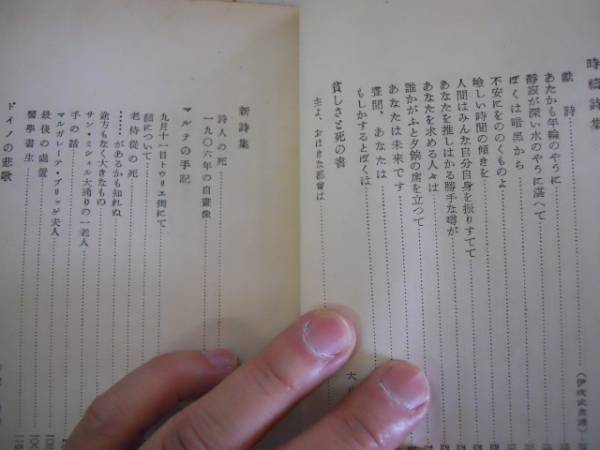 時禱詩集
獻詩
あたかも年輪のやうに
靜寂が深い水のやうに湛へて
ぼくは暗黑から
不安にをののくものよ
嶮しい時間の傾きを
人間はみんな自分自身を振りすてて
あなたを推しはかる勝手な噂が
あなたを求める人々は
誰かがふと夕餉の席を立つて
あなたは未來です
晝間、あなたは
もしかするとぼくは
貧しさと死の書
主よ、おほきな都會は
新詩集
詩人の死
一九〇六年の自畫像
マルテの手記
九月十一日トウリエ街にて
顏について
老侍從の死
があるかも知れぬ
途方もなく大きなもの
サン・ミシェル大通りの一老人
手の話
マルガレーテ・ブリッゲ夫人
最後の處置
醫學書生
ドイノの悲歌